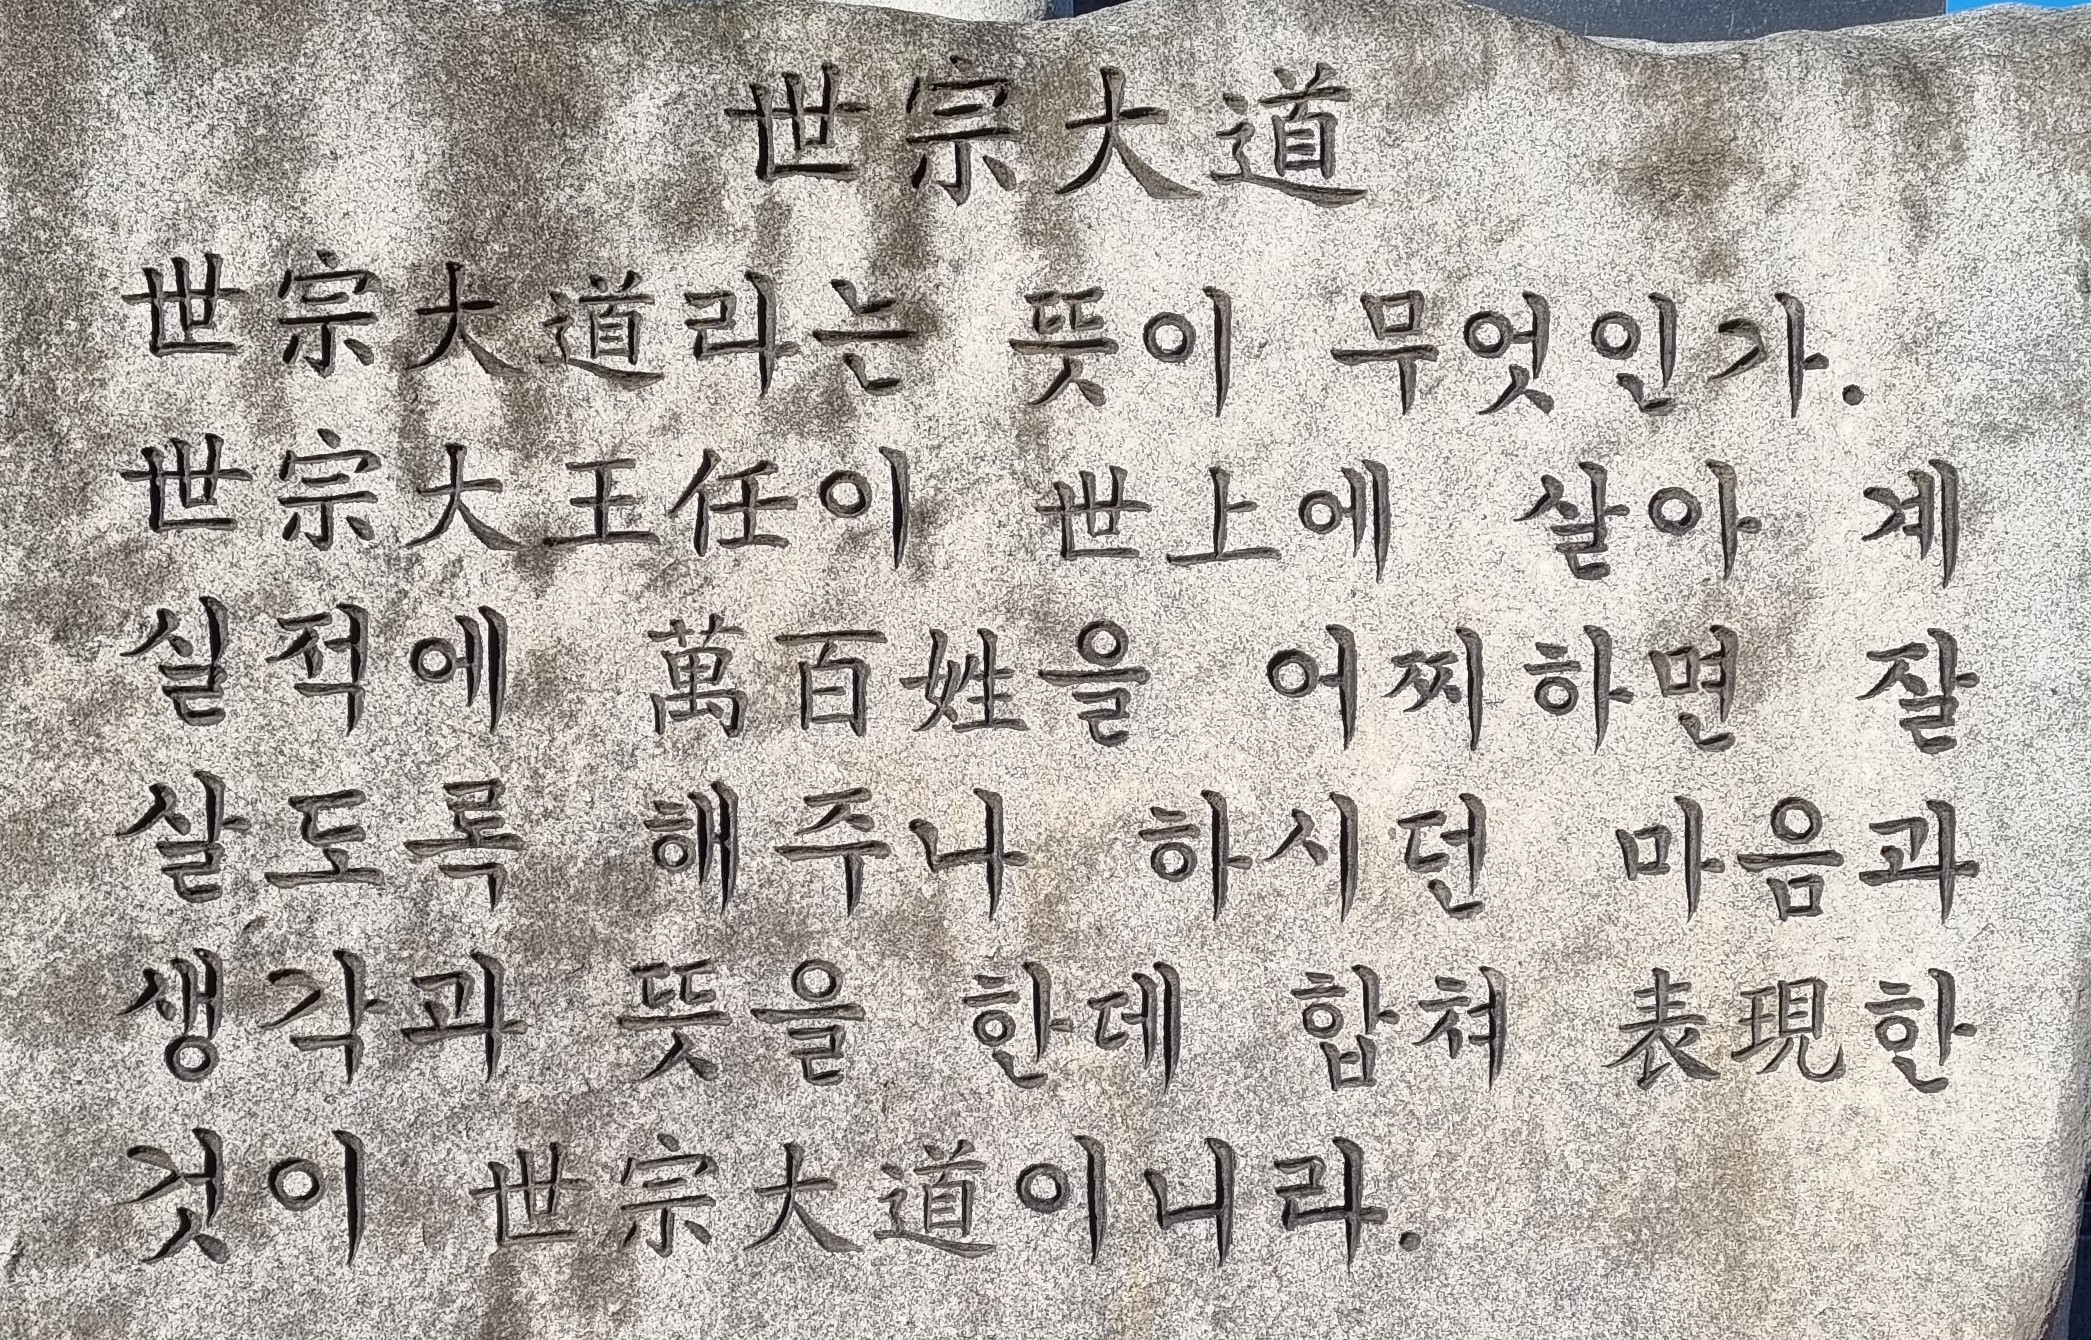 世宗大道
世宗大道라는 뜻이 무엇인가.
世宗大王任이 世上에 살아 계
실적에 萬百姓을 어찌하면 잘
살도록 해주나 하시던 마음과
생각과 뜻을 한데 합쳐 表現한
것이 世宗大道이니라.